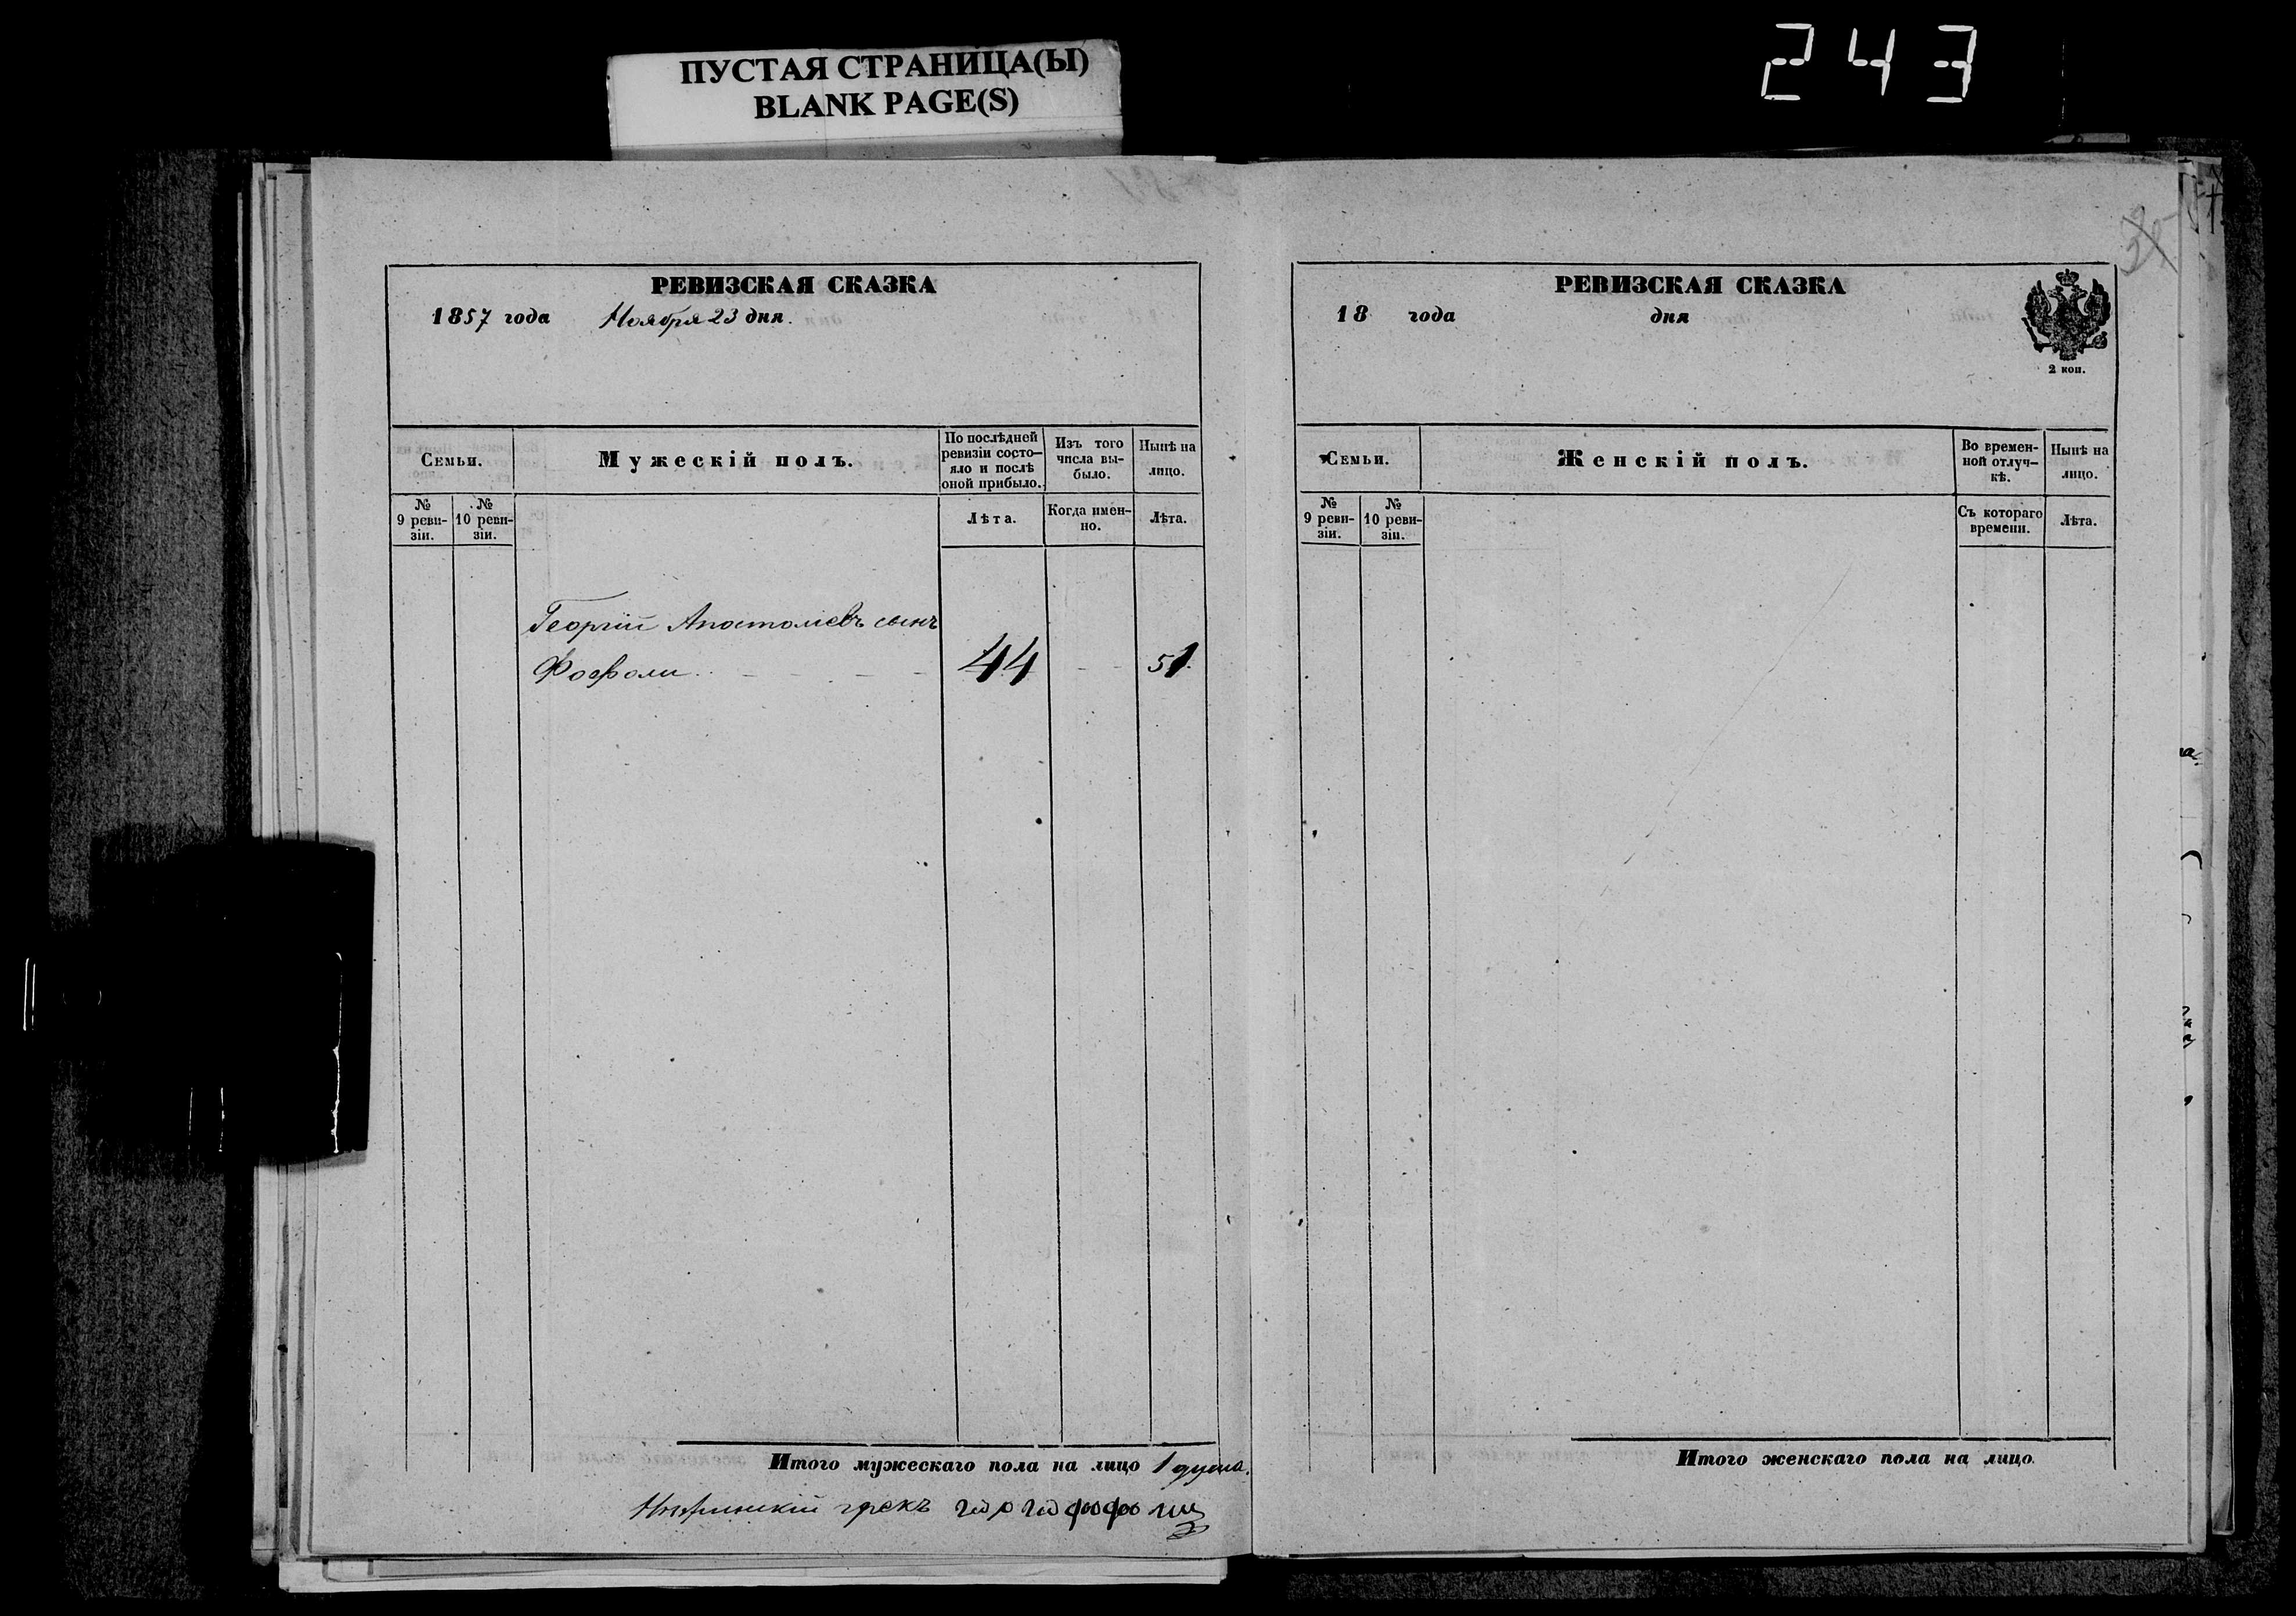 ПУСТАЯ СТРАНИЦА(Ы)
BLANK PAGE(S)
243
РЕВИЗСКАЯ СКАЗКА
1857 года Ноября 23 дня.
Семьи.
Мужескій полъ.
По послѣдней
ревизіи состо-
яло и послѣ
оной прибыло.
Изъ того
числа вы-
было.
Нынѣ на
лицо.
№
9 реви-
зіи.
№
10 реви-
зіи.
Лѣта.
Когда имен-
но.
Лѣта.
Георгій Апостоліевъ сынъ
44 51.
Итого мужескаго пола на лицо 1 душа.
грекъ
РЕВИЗСКАЯ СКАЗКА
18 года дня
2 коп.
Семьи.
Женскій полъ.
Во времен-
ной отлуч-
кѣ.
Нынѣ на
лицо.
№
9 реви-
зіи.
№
10 реви-
зіи.
Съ котораго
времени.
Лѣта.
Итого женскаго пола на лицо.